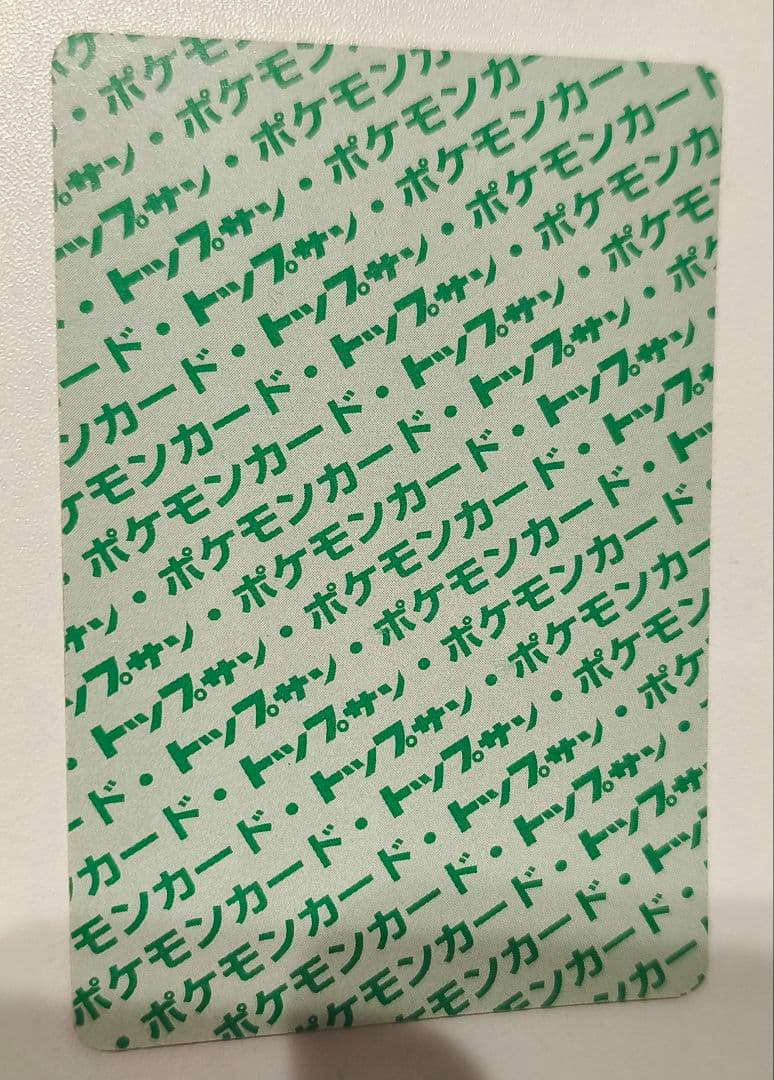 ・ポケモ
プサン・ポケモン
ップサン・ポケモンカ
・トップサン・ポケモンカー
ード・トップサン・ポケモンカー
ンカード・トップサン・ポケモンカード
ケモンカード・トップサン・ポケモンカ
・ポケモンカード・トップサン・ポケモ
サン・ポケモンカード・トップサン・ポケ
ップサン・ポケモンカード・トップサン・
・トップサン・ポケモンカード・トップ
ード・トップサン・ポケモンカード・トッ
カード・トップサン・ポケモンカード・
モンカード・トップサン・ポケモンカー
ポケモンカード・トップサン・ポケモン
・ポケモンカード・トップサン・ポケ
ポケモンカード・トップサン・
ケモンカード・トップサ
モンカード・トッ
ンカード・
カー